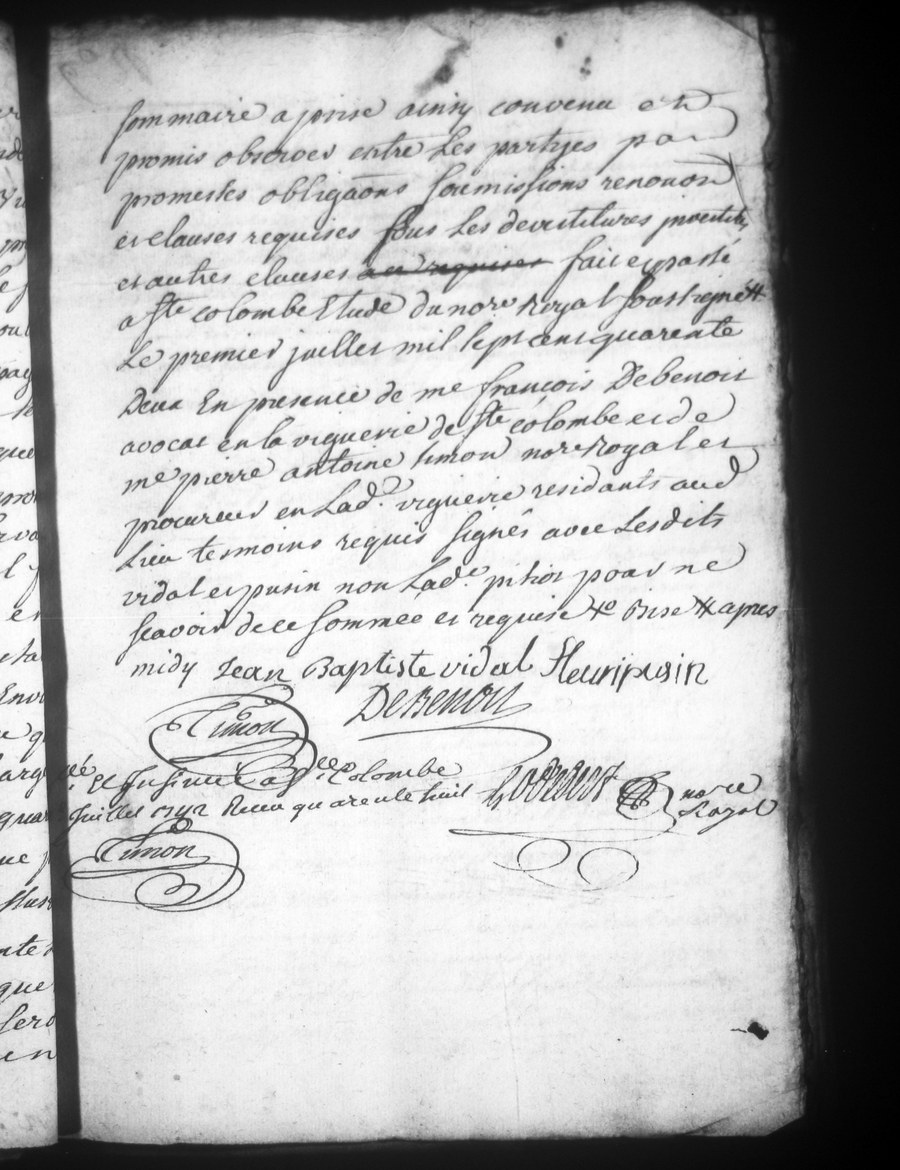 sommaire a prise ainsy convenu et
promis observer entre Les partyes par
promesses obligaōns soumissions renonon
et clauses requises sous Les devestitures investit.
et autres clauses et requises fait e passé
a ste colombe Etude du nore Royal soussigné #
Le premier juillet mil sept cens quarente
Deux En presence de me françois Debenoit
avocat en la viguerie de ste colombe et de
me pierre antoine simon nore Royal et
procureur en Lad.e viguerie residants aud
Lieu temoins requis signés avec Lesdits
vidal et pusin non Lad.e pitiot pour ne
scavoir de ce sommee et requise # apres
midy Jean Baptiste vidal fleuri pusin
DeBenoit
Simon
Et Insinué a Ste Colombe
Juillet 1742 Receu quarente huit
nore
Royal
Simon